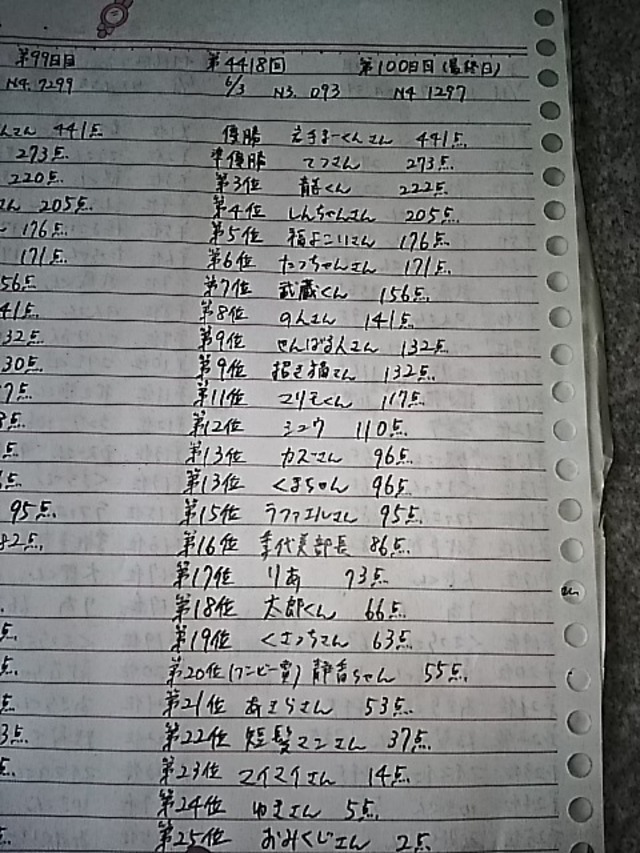 第99日目 第4418回 第100日目(最終日)
N4. 7299 6/3 N3. 093 N4 1297
さん 441点 優勝 岩手まーくんさん 441点.
273点. 準優勝 てつさん 273点.
220点. 第3位 くん 222点.
さん 205点. 第4位 しんちゃんさん 205点.
176点. 第5位 福よこいさん 176点.
171点. 第6位 たっちゃんさん 171点.
56点. 第7位 武蔵くん 156点.
41点. 第8位 のんさん 141点.
32点. 第9位 せんばる人さん 132点.
30点. 第9位 招き猫さん 132点.
7点. 第11位 マリモくん 117点.
点. 第12位 シュウ 110点.
点. 第13位 カズさん 96点.
点. 第13位 くまちゃん 96点.
95点. 第15位 ラファエルさん 95点.
82点. 第16位 美部長 86点.
第17位 りあ 73点.
第18位 太郎くん 66点.
点. 第19位 くさっちさん 63点.
点. 第20位(ブービー賞) 静香ちゃん 55点.
点. 第21位 あきらさん 53点.
3点. 第22位 短髪マンさん 37点.
点. 第23位 マイマイさん 14点.
第24位 ゆきさん 5点.
第25位 おみくじさん 2点.